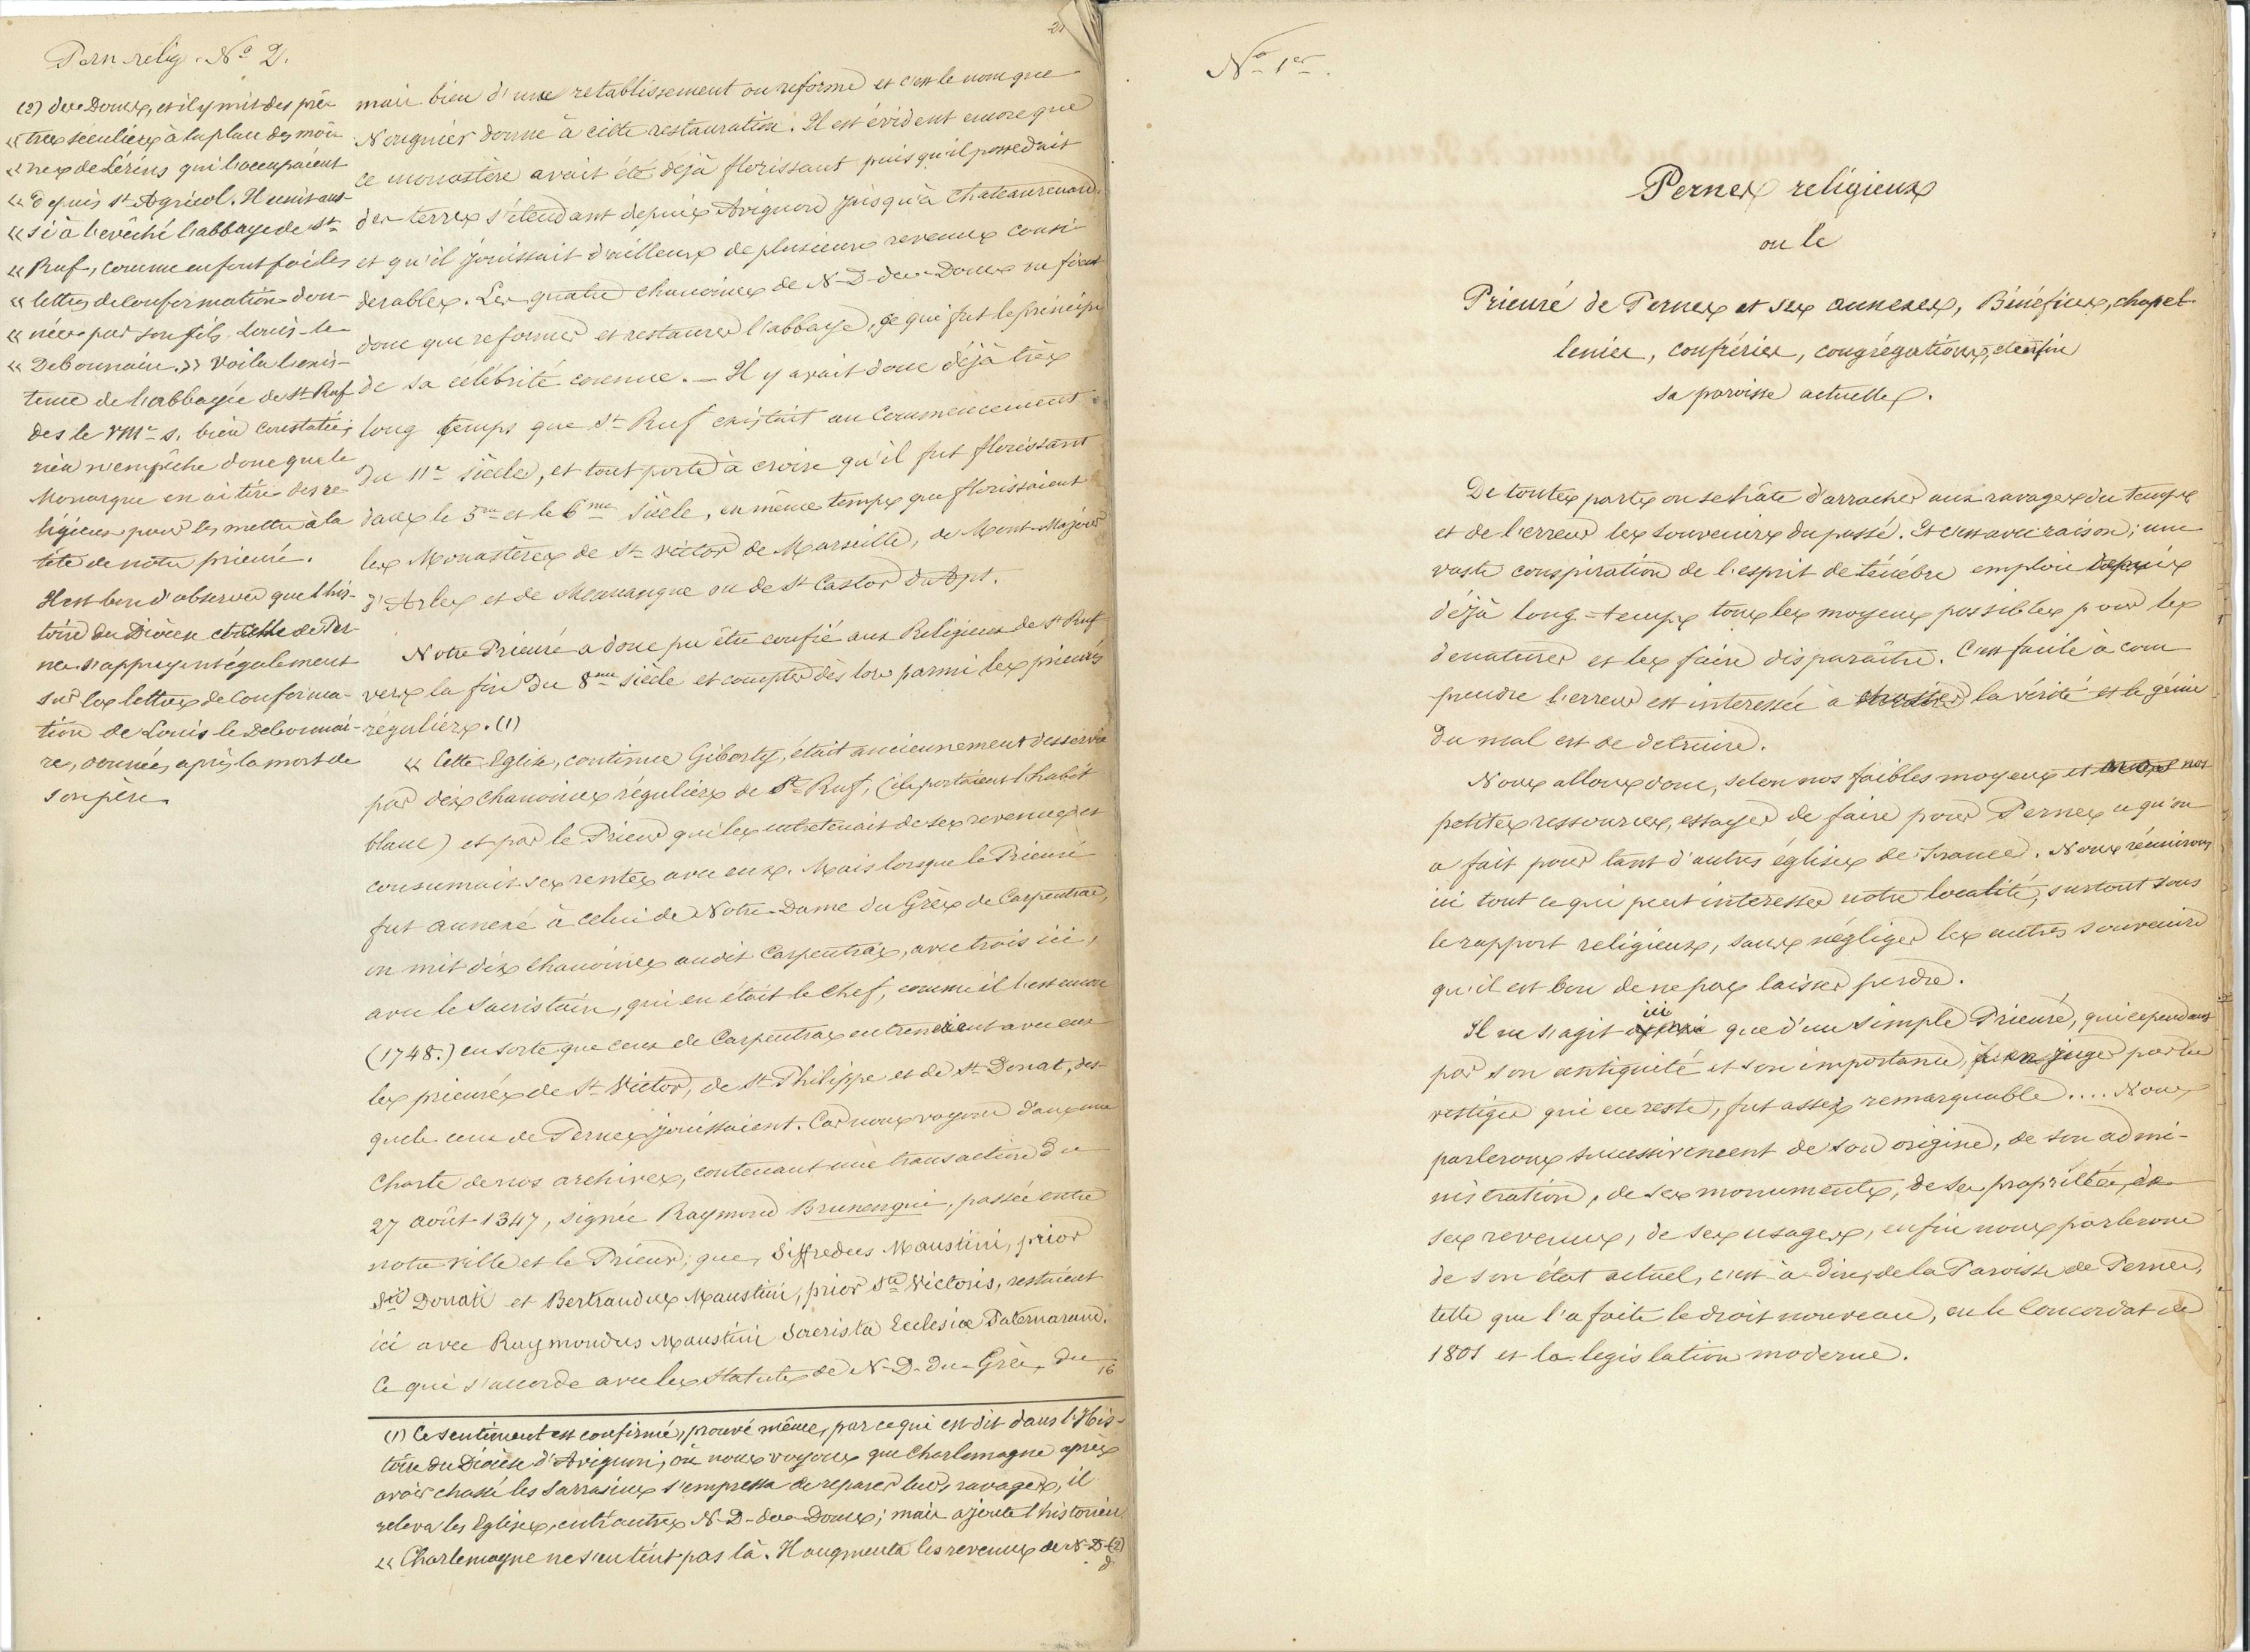 Pern relig. No 2.
21
(2) des Doms, et il y mit des prê-
« tres séculiers à la place des moi-
« nes de Lérins qui l'occupaient
« depuis st Agricol. Il unit aus-
« si à l'evêché l'abbaye de St
« Ruf, comme en font foi les
« lettres de confirmation don-
« nées par son fils Louis-le
« Debonnaire. » Voila l'exis-
tence de l'abbayée de St Ruf
des le VIIIe s. bien constatée;
rien n'empêche donc que le
Monarque en ai tiré des re-
ligieux pour les mettre à la
tête de notre prieuré.
Il est bon d'observer que l'his-
toire du Diocèse et celle de Per-
nes s'appuyent également
sur les lettres de confirma-
tion de Louis le Debonnai-
re, données après la mort de
son père.
mais bien d'une retablissement ou reforme et c'est le nom que
Nouguier donne à cette restauration. Il est évident encore que
ce monastère avait été déjà florissant puisqu'il possedait
des terres s'étendant depuis Avignon jusqu'à Chateaurenard
et qu'il jouissait d'ailleurs de plusieurs revenus consi-
derables. Les quatre chanoines de N-D-des-Doms ne firent
donc que reformer et restaurer l'abbaye, ce qui fut le principe
de sa célébrité connue. — Il y avait donc déjà très
long temps que St Ruf existait au commencement
du 11e siècle, et tout porte à croire qu'il fut florissant
dans le 5me et le 6me siècle, en même temps que florissaient
les Monastères de St Victor de Marseille, de Mont-Major
d'Arles et de Mananque ou de St Castor d'Apt.
Notre Prieuré a donc pu être confié aux Religieux de St Ruf
vers la fin du 8me siècle et compter dès lors parmi les prieurés
réguliers. (1)
« Cette Eglise, continue Giberty, était anciennement desservie
par dix chanoines réguliers de St Ruf, (ils portaient l'habit
blanc) et par le Prieur qui les entretenait de ses revenus et
consumait ses rentes avec eux. Mais lorsque le Prieuré
fut annexé à celui de Notre-Dame du Grès de Carpentras,
on mit dix chanoines audit Carpentras, avec trois ici,
avec le Sacristain, qui en était le chef, comme il l'est encore
(1748.) en sorte que ceux de Carpentras entrenaient avec eux
les prieurés de St Victor, de St Philippe et de St Donat, des-
quels ceux de Pernes jouissaient. Car nous voyons dans une
Charte de nos archives, contenant une transaction du
27 août 1347, signée Raymond Brunenqui, passée entre
notre ville et le Prieur; que, Siffredus Maustini, prior
Sti Donati et Bertrandus Maustini, prior Sti Victoris, restaient
ici avec Raymondus Maustini Sacrista Ecclesiæ Paternarum.
Ce qui s'accorde avec les statuts de N-D-du-Grès, du 16
(1) Ce sentiment est confirmé, prouvé même, par ce qui est dit dans l'His-
toire du Diocèse d'Avignon; où nous voyons que Charlemagne après
avoir chassé les Sarrasins s'empressa de reparer leurs ravages, il
releva les Eglises, entr'autres N-D-des-Doms; mais ajoute l'historien
« Charlemagne ne s'en tint pas là. Il augmenta les revenus de N-D- (2)
No 1er.
Pernes religieux
ou le
Prieuré de Pernes et ses annexes, Bénéfices, chapel-
lenies, confréries, congrégations, et enfin
sa paroisse actuelle.
De toutes parts on se hâte d'arracher aux ravages du temps
et de l'erreur les souvenirs du passé. Et c'est avec raison; une
vaste conspiration de l'esprit de ténèbre emploie depuis
déjà long-temps tous les moyens possibles pour les
denaturer et les faire disparaître. C'est facile à com
prendre l'erreur est interessée à la vérité et le génie
du mal est de detruire.
Nous allons donc, selon nos faibles moyens et nos
petites ressources, essayer de faire pour Pernes ce qu'on
a fait pour tant d'autres églises de France. Nous réunirons
ici tout ce qui peut interesser notre localité, surtout sous
le rapport religieux, sans négliger les autres souvenirs
qu'il est bon de ne pas laisser perdre.
Il ne s'agit ici que d'un simple Prieuré, qui cependant
par son antiquité et son importance, à en juger par les
vestiges qui en reste, fut assez remarquable.... Nous
parlerons successivement de son origine, de son admi-
nistration, de ses monuments, de ses propriétés, de
ses revenus, de ses usages, enfin nous parlerons
de son état actuel, c'est-à-dire, de la Paroisse de Pernes,
telle que l'a faite le droit nouveau, ou le Concordat de
1801 et la legislation moderne.